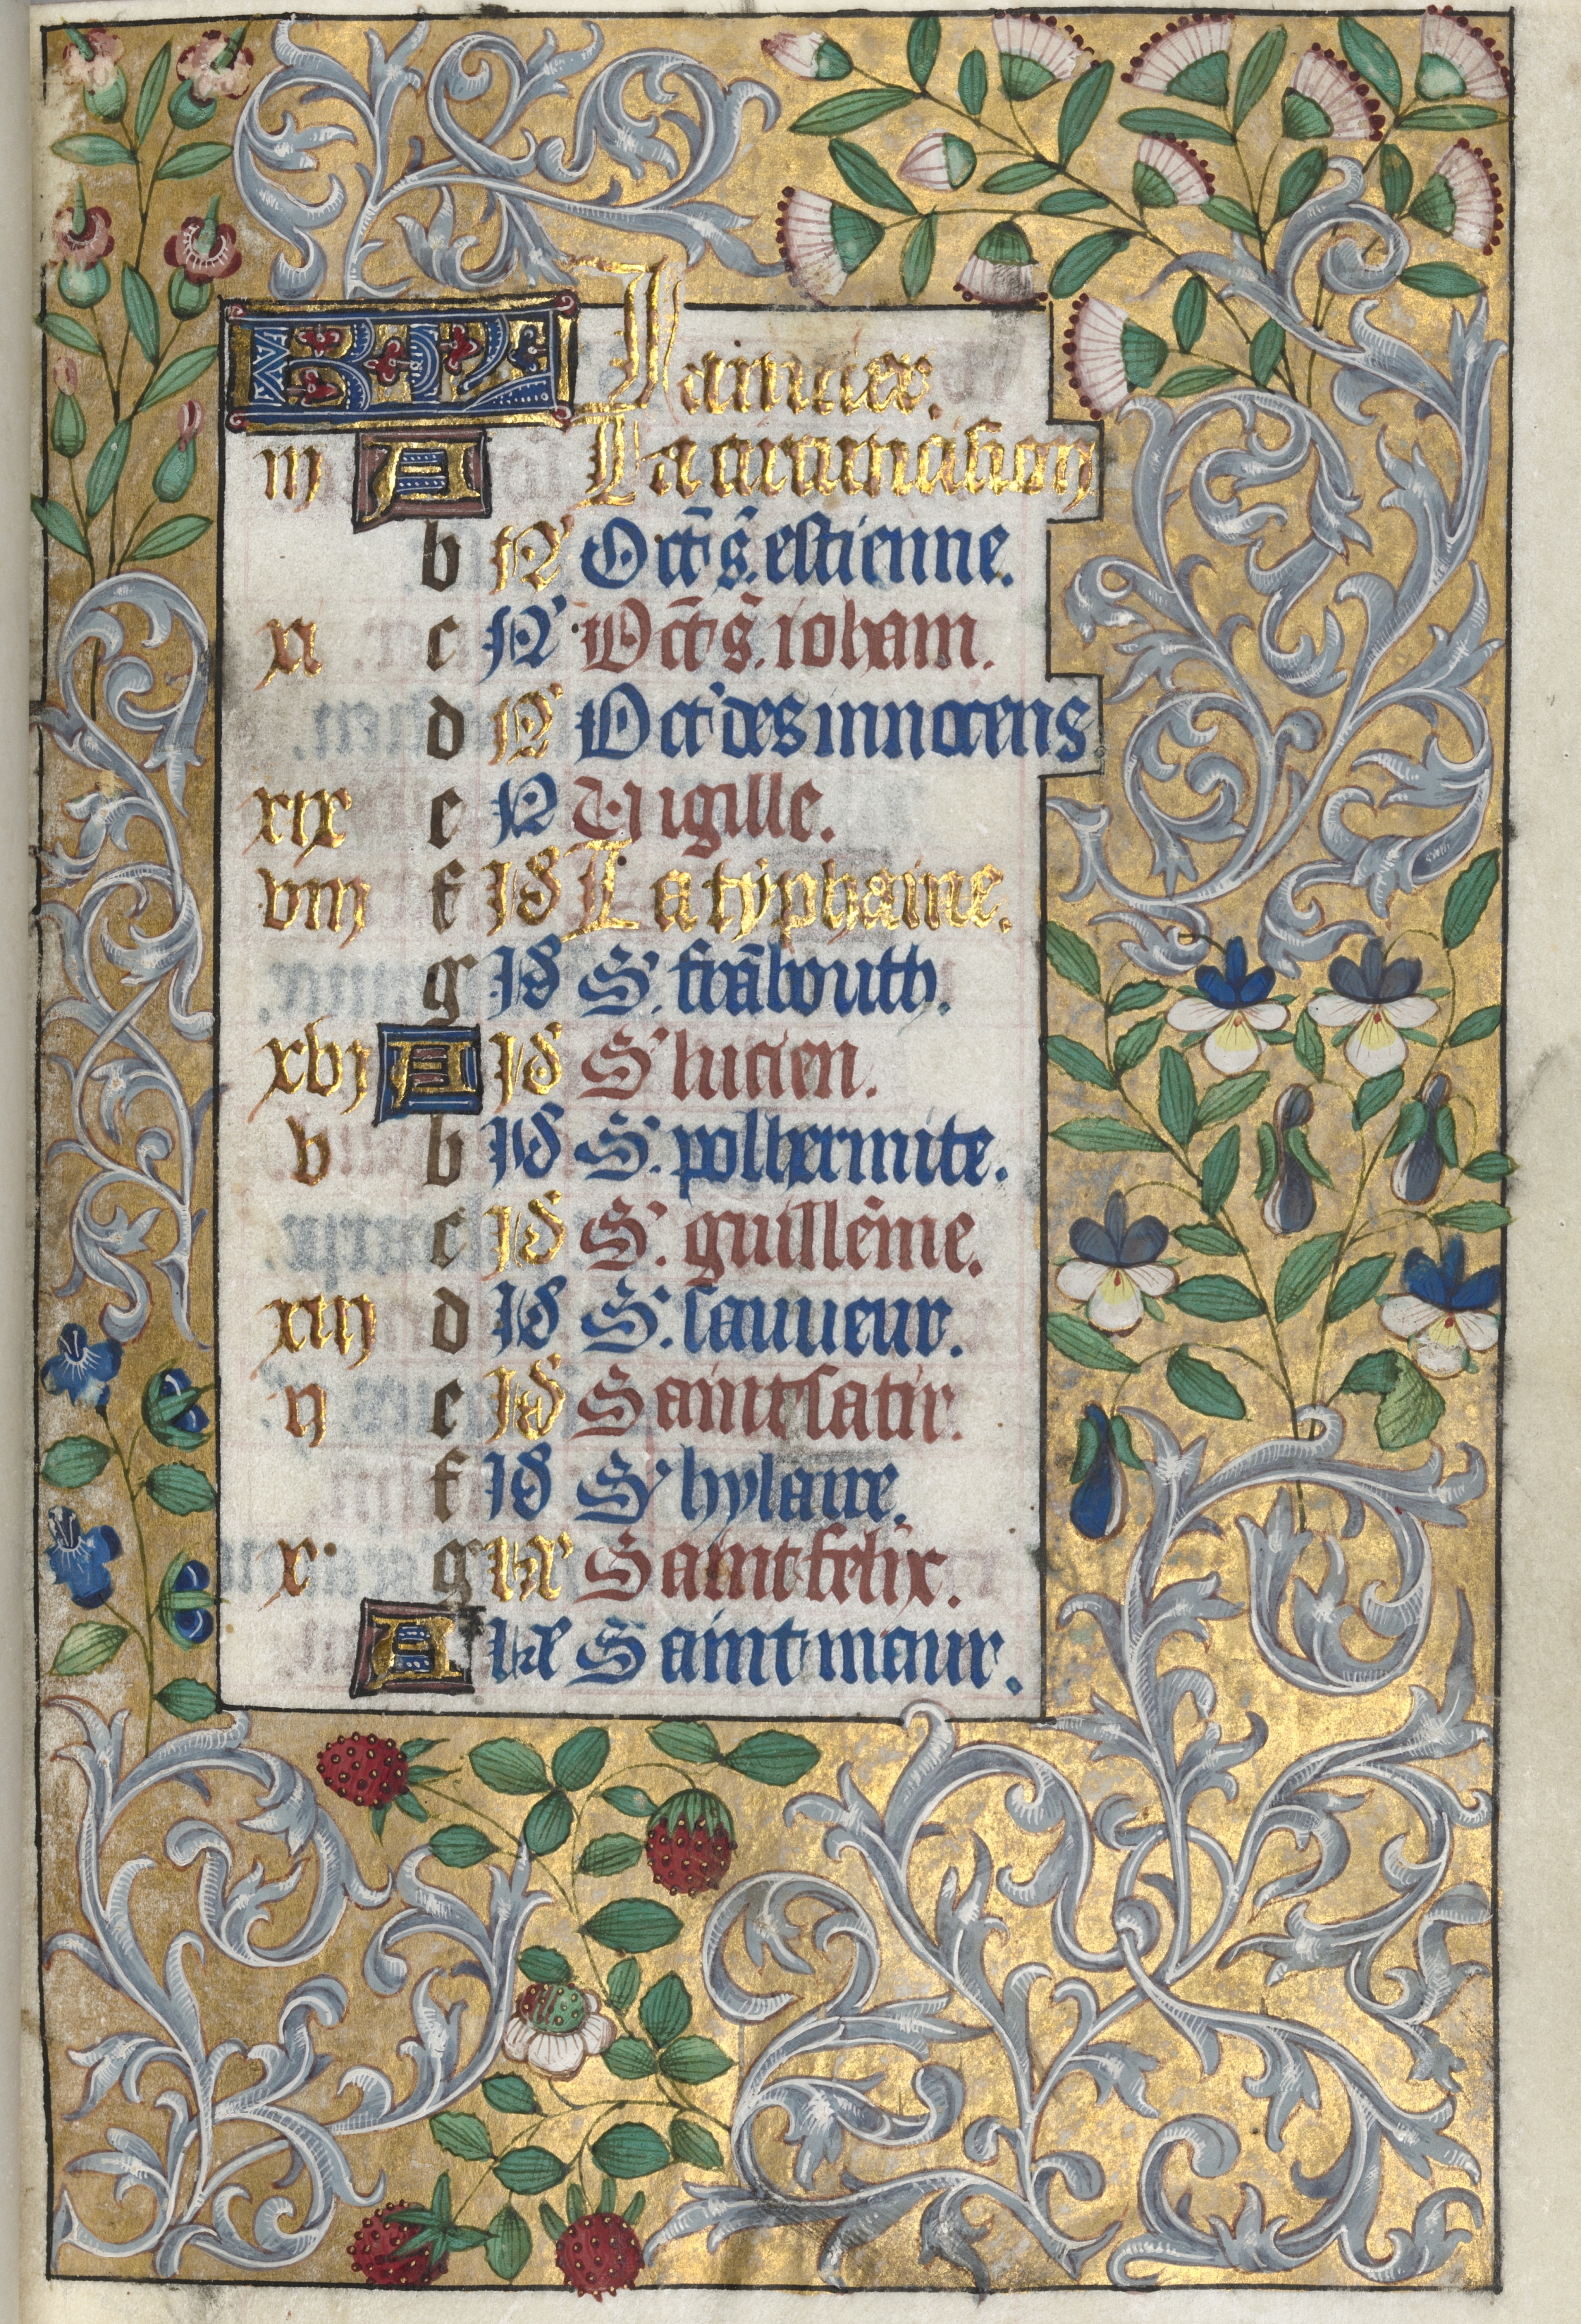 KL Januier.
iij A La circuncision
b N' Oct' s. estienne.
xi c N' Oct' s. ioham.
d N' Oct' des innocens
xix e N Vigille.
viij f Id La typhaine.
g Id S'. frābouth.
xvj A Id S' lucien.
v b Id S'. pol hermite.
c Id S'. guillēme.
xiij d Id S'. sauueur.
ij e Id Saint satir.
f Id S' hylaire.
x g kl Saint felix.
A kl Saint maur.